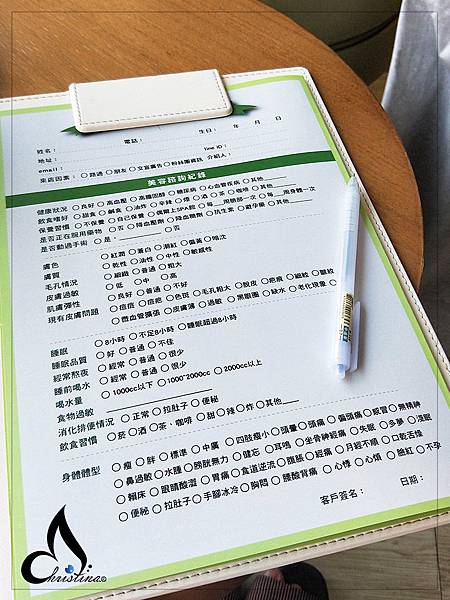 姓名： 電話： 生日： 年 月 日
地址： line ID：
email： 介紹人：
來店因素：○路過 ○朋友 ○文宣廣告 ○粉絲團資訊
美容諮詢紀錄
健康狀況 ○良好 ○高血壓 ○高膽固醇 ○糖尿病 ○心血管疾病 ○其他
飲食嗜好 ○甜食 ○鹹食 ○油炸 ○辛辣 ○煙 ○酒 ○茶 ○咖啡 ○其他
保養習慣 ○不保養 ○自己保養 ○偶爾上SPA館 ○每__周臉部一次 ○每__周身體一次
是否正在服用藥物 ○否 ○降血壓劑 ○降血糖劑 ○抗生素 ○避孕藥 ○其他
是否動過手術 ○是， ○否
膚色 ○紅潤 ○蒼白 ○潮紅 ○偏黃 ○暗沈
膚質 ○乾性 ○油性 ○中性 ○敏感性
毛孔情況 ○細緻 ○普通 ○粗大
皮膚過敏 ○低 ○中 ○高
肌膚彈性 ○良好 ○普通 ○不好
現有皮膚問題 ○痘痘 ○痘疤 ○色斑 ○毛孔粗大 ○脫皮 ○疤痕 ○細紋 ○皺紋
○微血管擴張 ○皮膚薄 ○過敏 ○黑眼圈 ○缺水 ○老化現象
睡眠 ○8小時 ○不足8小時 ○睡眠超過8小時
睡眠品質 ○好 ○普通 ○不佳
經常熬夜 ○經常 ○普通 ○很少
睡前喝水 ○經常 ○普通 ○很少
喝水量 ○1000cc以下 ○1000~2000cc ○2000cc以上
食物過敏
消化排便情況 ○正常 ○拉肚子 ○便秘
飲食習慣 ○菸 ○酒 ○茶、咖啡 ○甜 ○辣 ○炸 ○其他
身體體型 ○瘦 ○胖 ○標準 ○中廣 ○四肢瘦小 ○頭暈 ○頭痛 ○偏頭痛 ○感冒 ○無精神
○鼻過敏 ○水腫 ○膀胱無力 ○健忘 ○耳鳴 ○坐骨神經痛 ○失眠 ○多夢 ○淺眠
○賴床 ○眼睛酸澀 ○胃痛 ○食道逆流 ○腹脹 ○經痛 ○月經不順 ○口乾舌燥
○便祕 ○拉肚子 ○手腳冰冷 ○胸悶 ○腰酸背痛 ○心悸 ○心煩 ○臉紅 ○不孕
客戶簽名： 日期：
Christina